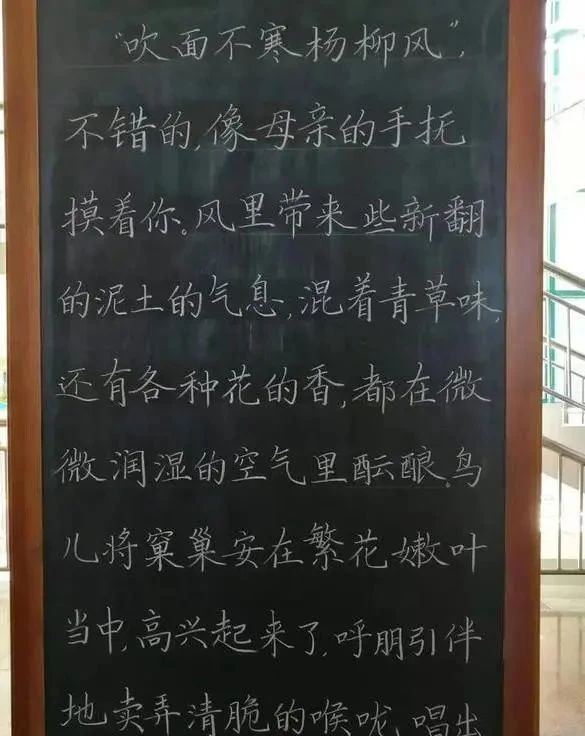 “吹面不寒杨柳风”,
不错的,像母亲的手抚
摸着你。风里带来些新翻
的泥土的气息,混着青草味,
还有各种花的香,都在微
微润湿的空气里酝酿。鸟
儿将窠巢安在繁花嫩叶
当中,高兴起来了,呼朋引伴
地卖弄清脆的喉咙,唱出